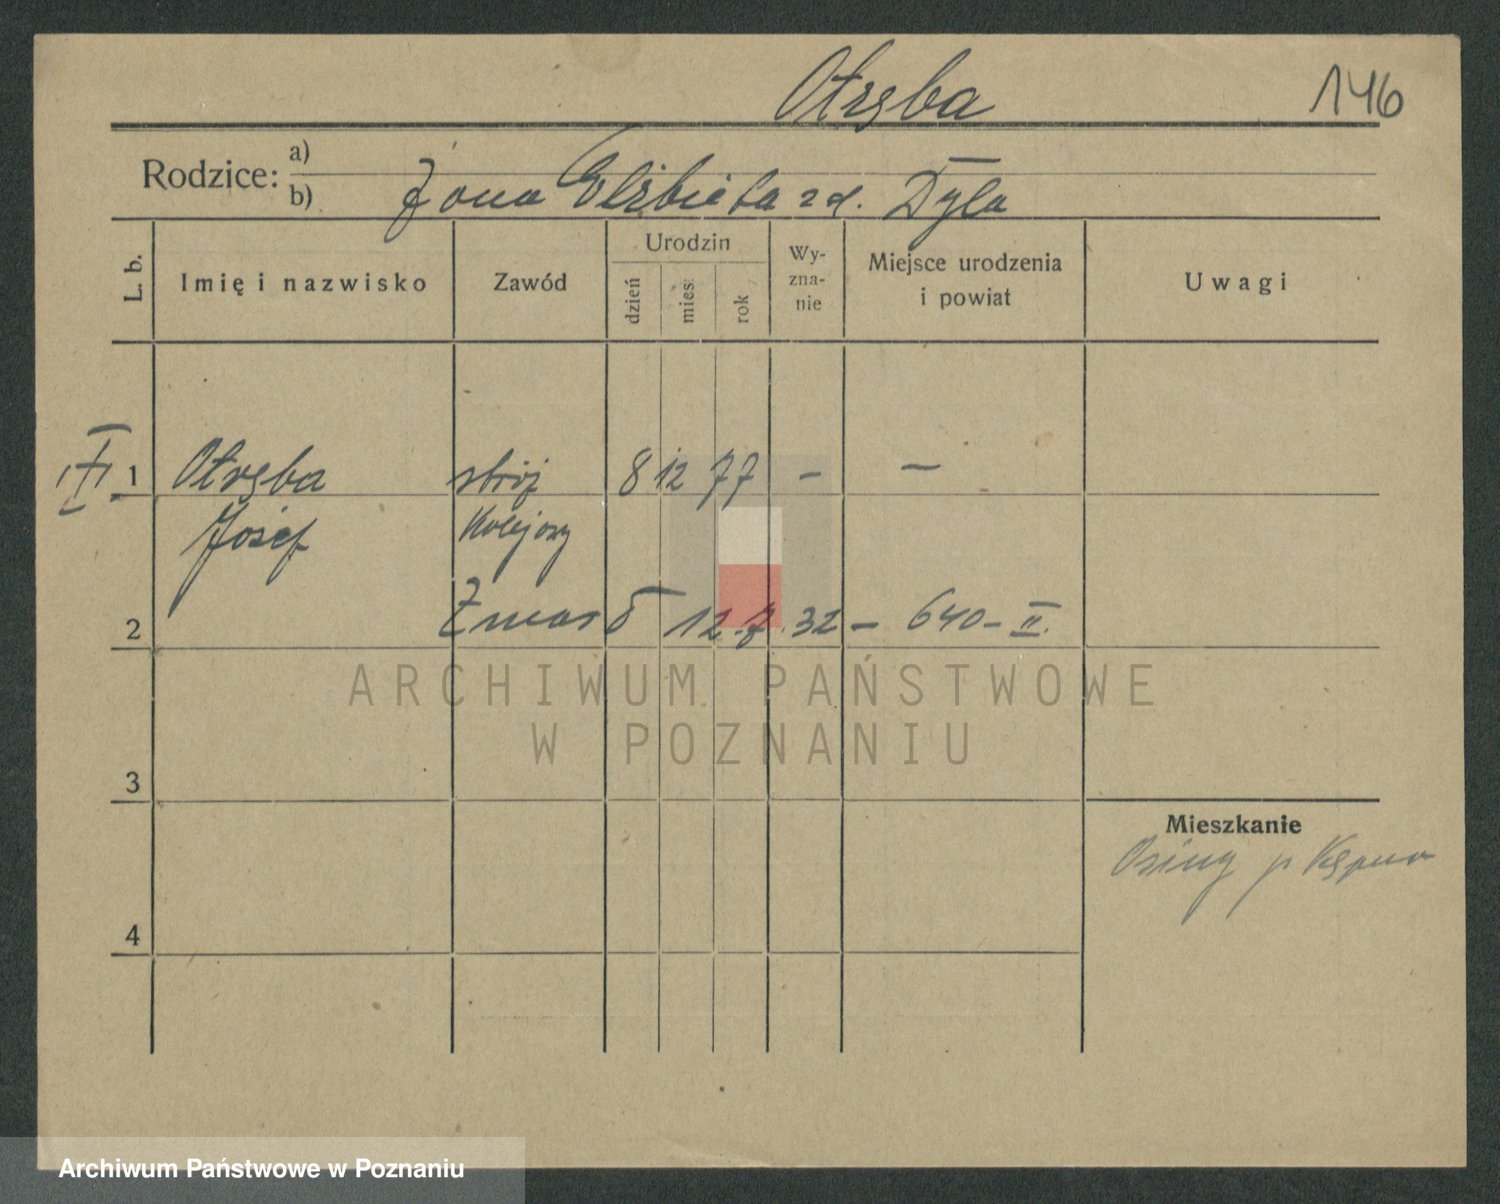 Otręba
146
Rodzice: a)
b) Żona Elżbieta zd. Dyla
L. b.
Imię i nazwisko
Zawód
Urodzin
dzień
mies.
rok
Wy-
zna-
nie
Miejsce urodzenia
i powiat
Uwagi
1 Otręba stróż 8 12 77 – –
Józef Kolejowy
2 Zmarł 12.7.32 – 640 – II.
ARCHIWUM PAŃSTWOWE
W POZNANIU
3
Mieszkanie
Osiny p Kępno
4
Archiwum Państwowe w Poznaniu